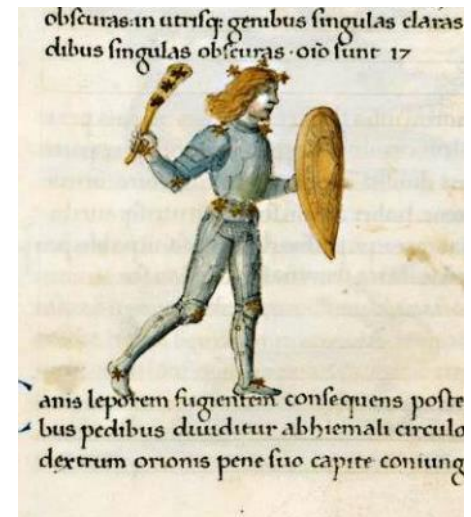 obscuras:in utrisq; genibus singulas claras
dibus singulas obscuras · oio sunt 17
anis leporem fugientem consequens poste
bus pedibus diuiditur abhiemali circulo
dextrum orionis pene suo capite coniung